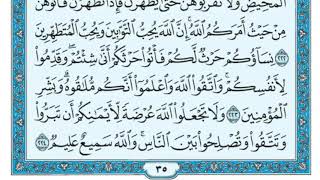 ٱلْمَحِيضِ وَلَا تَقْرَبُوهُنَّ حَتَّىٰ يَطْهُرْنَ فَإِذَا تَطَهَّرْنَ فَأْتُوهُنَّ
مِنْ حَيْثُ أَمَرَكُمُ ٱللَّهُ إِنَّ ٱللَّهَ يُحِبُّ ٱلتَّوَّٰبِينَ وَيُحِبُّ ٱلْمُتَطَهِّرِينَ
٢٢٢ نِسَآؤُكُمْ حَرْثٌ لَّكُمْ فَأْتُوا۟ حَرْثَكُمْ أَنَّىٰ شِئْتُمْ وَقَدِّمُوا۟
لِأَنفُسِكُمْ وَٱتَّقُوا۟ ٱللَّهَ وَٱعْلَمُوٓا۟ أَنَّكُم مُّلَٰقُوهُ وَبَشِّرِ
ٱلْمُؤْمِنِينَ ٢٢٣ وَلَا تَجْعَلُوا۟ ٱللَّهَ عُرْضَةً لِّأَيْمَٰنِكُمْ أَن تَبَرُّوا۟
وَتَتَّقُوا۟ وَتُصْلِحُوا۟ بَيْنَ ٱلنَّاسِ وَٱللَّهُ سَمِيعٌ عَلِيمٌ ٢٢٤
٣٥